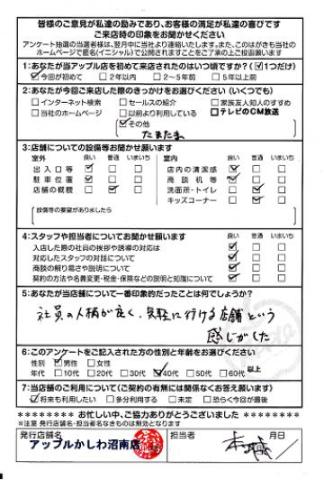 皆様のご意見が私達の励みであり、お客様の満足が私達の喜びです
ご来店時の印象をお聞かせください
アンケート抽選の当選者様は、翌月中に当社より連絡いたします。また、このはがきを当社
ホームページで匿名(イニシャル)で公開されますことをご了承の上ご投函願います
1:あなたが当アップル店を初めて来店されたのはいつ頃ですか?(☑1つだけ)
☑今回が初めて □2年以内 □2~5年前 □5年以上前
2:あなたが今回ご来店した際のきっかけをお選びください(いくつでも)
□インターネット検索 □セールスの紹介 □家族友人知人のすすめ
□当社のホームページ □以前より利用している □テレビのCM放送
☑その他
たまたま
3:店舗についての設備等お聞かせ願います
室外 良い 普通 いまいち 室内 良い 普通 いまいち
出入口等 ☑ □ □ 店内の清潔感 ☑ □ □
駐車位置 ☑ □ □ 商談机等 ☑ □ □
店舗の概観 □ ☑ □ 洗面所・トイレ □ ☑ □
キッズコーナー □ ☑ □
(設備等の要望がありましたら
4:スタッフや担当者についてお聞かせ願います 良い 普通 いまいち
入店した際の社員の挨拶や誘導の対応は ☑ □ □
対応したスタッフの対話について ☑ □ □
商談の解り易さや説明について ☑ □ □
契約の方法や名義変更・税金・保険などの説明と知識について ☑ □ □
5:あなたが当店舗について一番印象的だったことは何でしょうか?
社員の人柄が良く、気軽に行ける店舗という
感じがした
6:このアンケートをご記入された方の性別と年齢をお選びください
性別 ☑男性 □女性
年代 □10代 □20代 □30代 ☑40代 □50代 □60代 以上
7:当店舗のご利用について(ご契約の有無には関係なくお答え願います)
☑将来も利用したい □多分利用する □未定 □恐らく今回が最後
******** お忙しい中、ご協力ありがとうございました ********
※注意 発行店舗名・担当者名なきものは無効となります
発行店舗名 担当者 月日
アップルかしわ沼南店